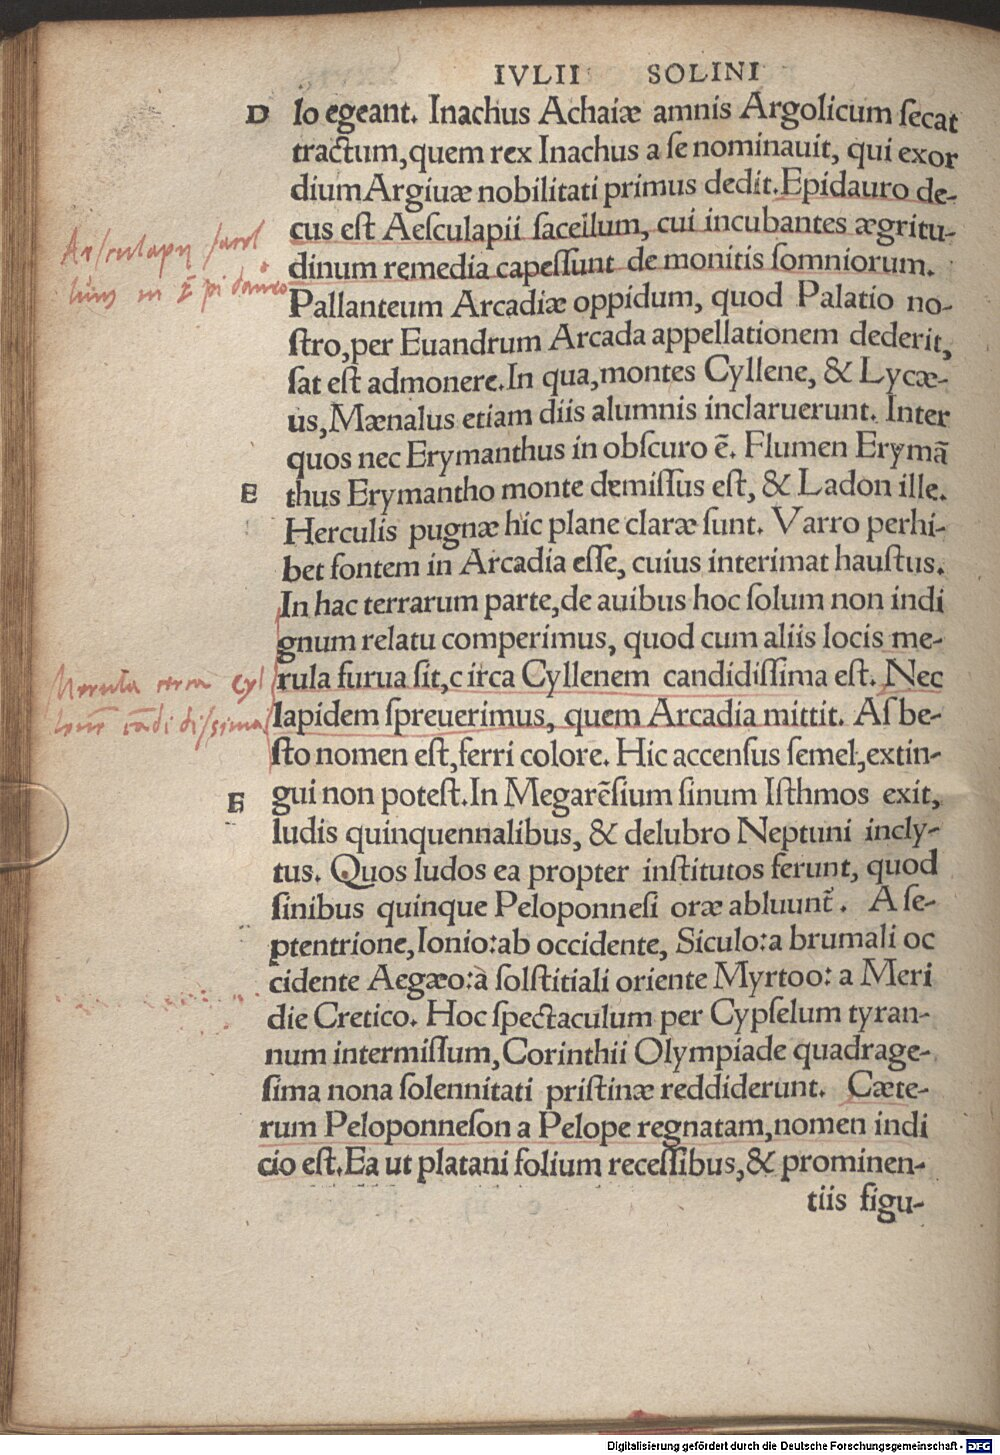 IVLII SOLINI
D lo egeant. Inachus Achaiæ amnis Argolicum ſecat
tractum,quem rex Inachus a ſe nominauit, qui exor
dium Argiuæ nobilitati primus dedit.Epidauro de-
cus eſt Aeſculapii ſacellum, cui incubantes ægritu-
dinum remedia capeſſunt de monitis ſomniorum.
Aeſculapij ſacel
lum in Epidauro
Pallanteum Arcadiæ oppidum, quod Palatio no-
ſtro,per Euandrum Arcada appellationem dederit,
ſat eſt admonere.In qua,montes Cyllene, & Lycæ-
us,Mænalus etiam diis alumnis inclaruerunt. Inter
quos nec Erymanthus in obſcuro ē. Flumen Erymā
E thus Erymantho monte demiſſus eſt, & Ladon ille.
Herculis pugnæ hic plane claræ ſunt. Varro perhi-
bet fontem in Arcadia eſſe, cuius interimat hauſtus.
In hac terrarum parte,de auibus hoc ſolum non indi
gnum relatu comperimus, quod cum aliis locis me-
rula furua ſit,c irca Cyllenem candidiſſima eſt. Nec
Merula circa Cyl
lenē cādidiſsima
lapidem ſpreuerimus, quem Arcadia mittit. Aſbe-
ſto nomen eſt,ferri colore. Hic accenſus ſemel,extin-
F gui non poteſt.In Megarēſium ſinum Iſthmos exit,
ludis quinquennalibus, & delubro Neptuni incly-
tus. Quos ludos ea propter inſtitutos ferunt, quod
ſinibus quinque Peloponneſi oræ abluunt̄. A ſe-
ptentrione,Ionio:ab occidente, Siculo:a brumali oc
cidente Aegæo:à ſolſtitiali oriente Myrtoo: a Meri
die Cretico. Hoc ſpectaculum per Cypſelum tyran-
num intermiſſum,Corinthii Olympiade quadrage-
ſima nona ſolennitati priſtinæ reddiderunt. Cæte-
rum Peloponneſon a Pelope regnatam,nomen indi
cio eſt.Ea ut platani folium receſſibus,& prominen-
tiis figu-
Digitalisierung gefördert durch die Deutsche Forschungsgemeinschaft - DFG